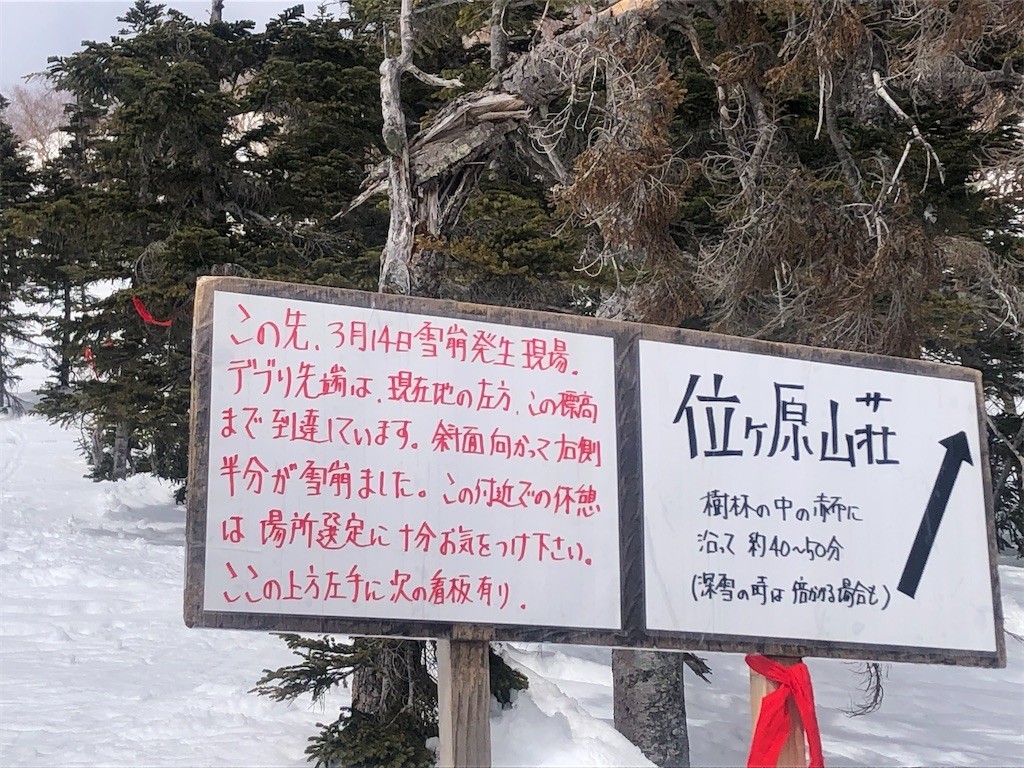 この先、3月14日雪崩発生現場。
デブリ先端は、現在地の左方、この標高
まで到達しています。斜面向かって右側
半分が雪崩ました。この付近での休憩
は場所選定に十分お気をつけ下さい。
ここの上方左手に次の看板有り。
位ヶ原山荘
樹林の中の赤布に
沿って 約40〜50分
(深雪の時は倍かかる場合も)